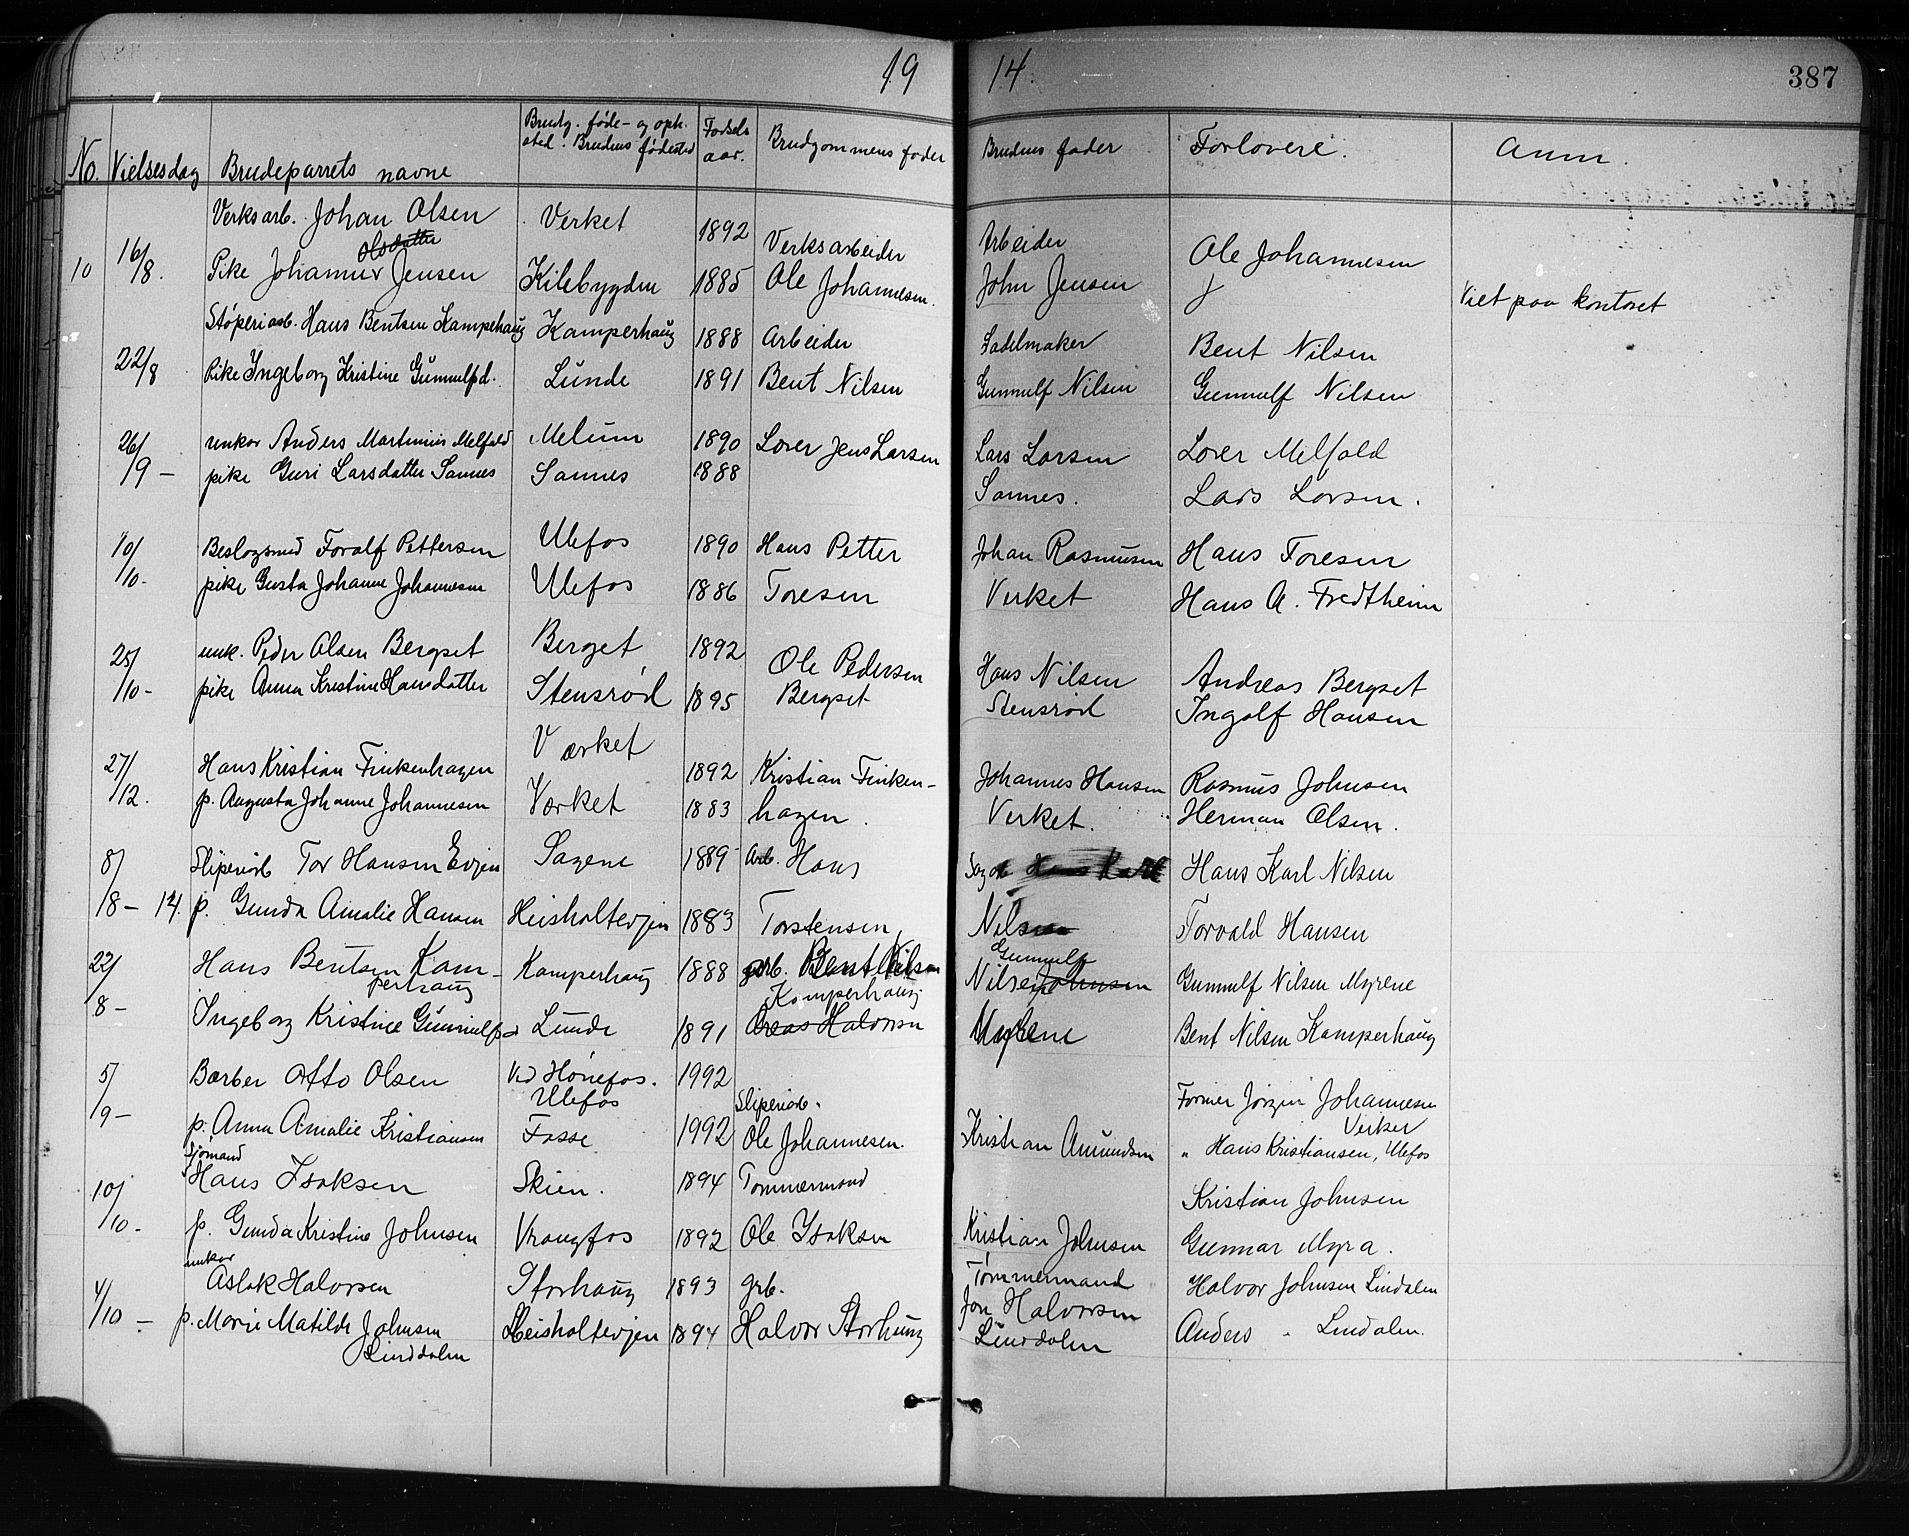 19 14. 387
No. Vielsesdag Brudeparrets navne Brudg. føde- og oph. sted. Brudens fødested Fødsels aar. Brudgommens fader Brudens fader Forlovere. Anm.
Verksarb. Johan Olsen Verket 1892 Verksarbeider Arbeider Ole Johannesen
10 16/8. Pike Johanne Olsdatter Jensen Kilebygden 1885 Ole Johannesen. John Jensen Viet paa kontoret
Støperiarb. Hans Bentsen Kampehaug Kamperhaug 1888 Arbeider Sadelmaker Bent Nilsen
22/8 Pike Ingeborg Kristine Gunnulfsd. Lunde 1891 Bent Nilsen Gunnulf Nilsen Gunnulf Nilsen
26/9 - unkar Anders Martinius Melfald Melum 1890 Lover Jens Larsen Lars Larsen Lover Melfald
pike Guri Larsdatter Sannes Sannes 1888 Sannes. Lars Larsen.
10/10. Beslagsmed Toralf Pettersen Ulefos 1890 Hans Petter Johan Rasmussen Hans Toresen
pike Gusta Johanne Johannesen Ulefos 1886 Toresen Verket Hans A. Fredtheim
25/10 - unk. Peder Olsen Bergset Berget 1892 Ole Pedersen Hans Nilsen Andreas Bergset
pike Anna Kristine Hansdatter Stensrød 1895 Bergset Stensrød Ingolf Hansen
27/12. Hans Kristian Finkenhagen Værket 1892 Kristian Finken- Johannes Hansen Rasmus Johnsen
p. Augusta Johanne Johannesen Værket 1883 hagen. Verket. Herman Olsen.
8/8 - 14. Sliperiarb Tor Hansen Evjen Sagene 1889 Arb. Hans Hans Karl Hans Karl Nilsen
p. Gunda Amalie Hansen Heisholtevjen 1883 Torstensen Nilsen Torvald Hansen
22/8 - Hans Bentsen Kam- Kamperhaug 1888 arb. Bent Nilsen Gunnulf
perhaug Kamperhaug Nilsen Johnsen Gunnulf Nilsen Myrene
Ingeborg Kristine Gunnulfsd Lunde 1891 Halvorsen Myrene Bent Nilsen Kamperhaug
5/9 - Barber Otto Olsen Ved Hønefos. 1992 Former Jørgen Johannesen
Ulefos Sliperiarb. Verket
p. Anna Amalie Kristiansen Fosse 1992 Ole Johannesen. Kristian Amundsen " Hans Kristiansen, Ulefos
Sjømand
10/10 - Hans Isaksen Skien. 1894 Tømmermand Kristian Johnsen
p. Gunda Kristine Johnsen Vrangfos 1892 Ole Isaksen Kristian Johnsen Gunnar Myra.
unkar
4/10 - Aslak Halvorsen Storhaug 1893 grb. Tømmermand Halvor Johnsen Lindalen
p. Marie Matilde Johnsen Heisholtevjen 1894 Halvor Storhaug Jon Halvorsen Anders " Lindalen.
Linddalen Linddalen